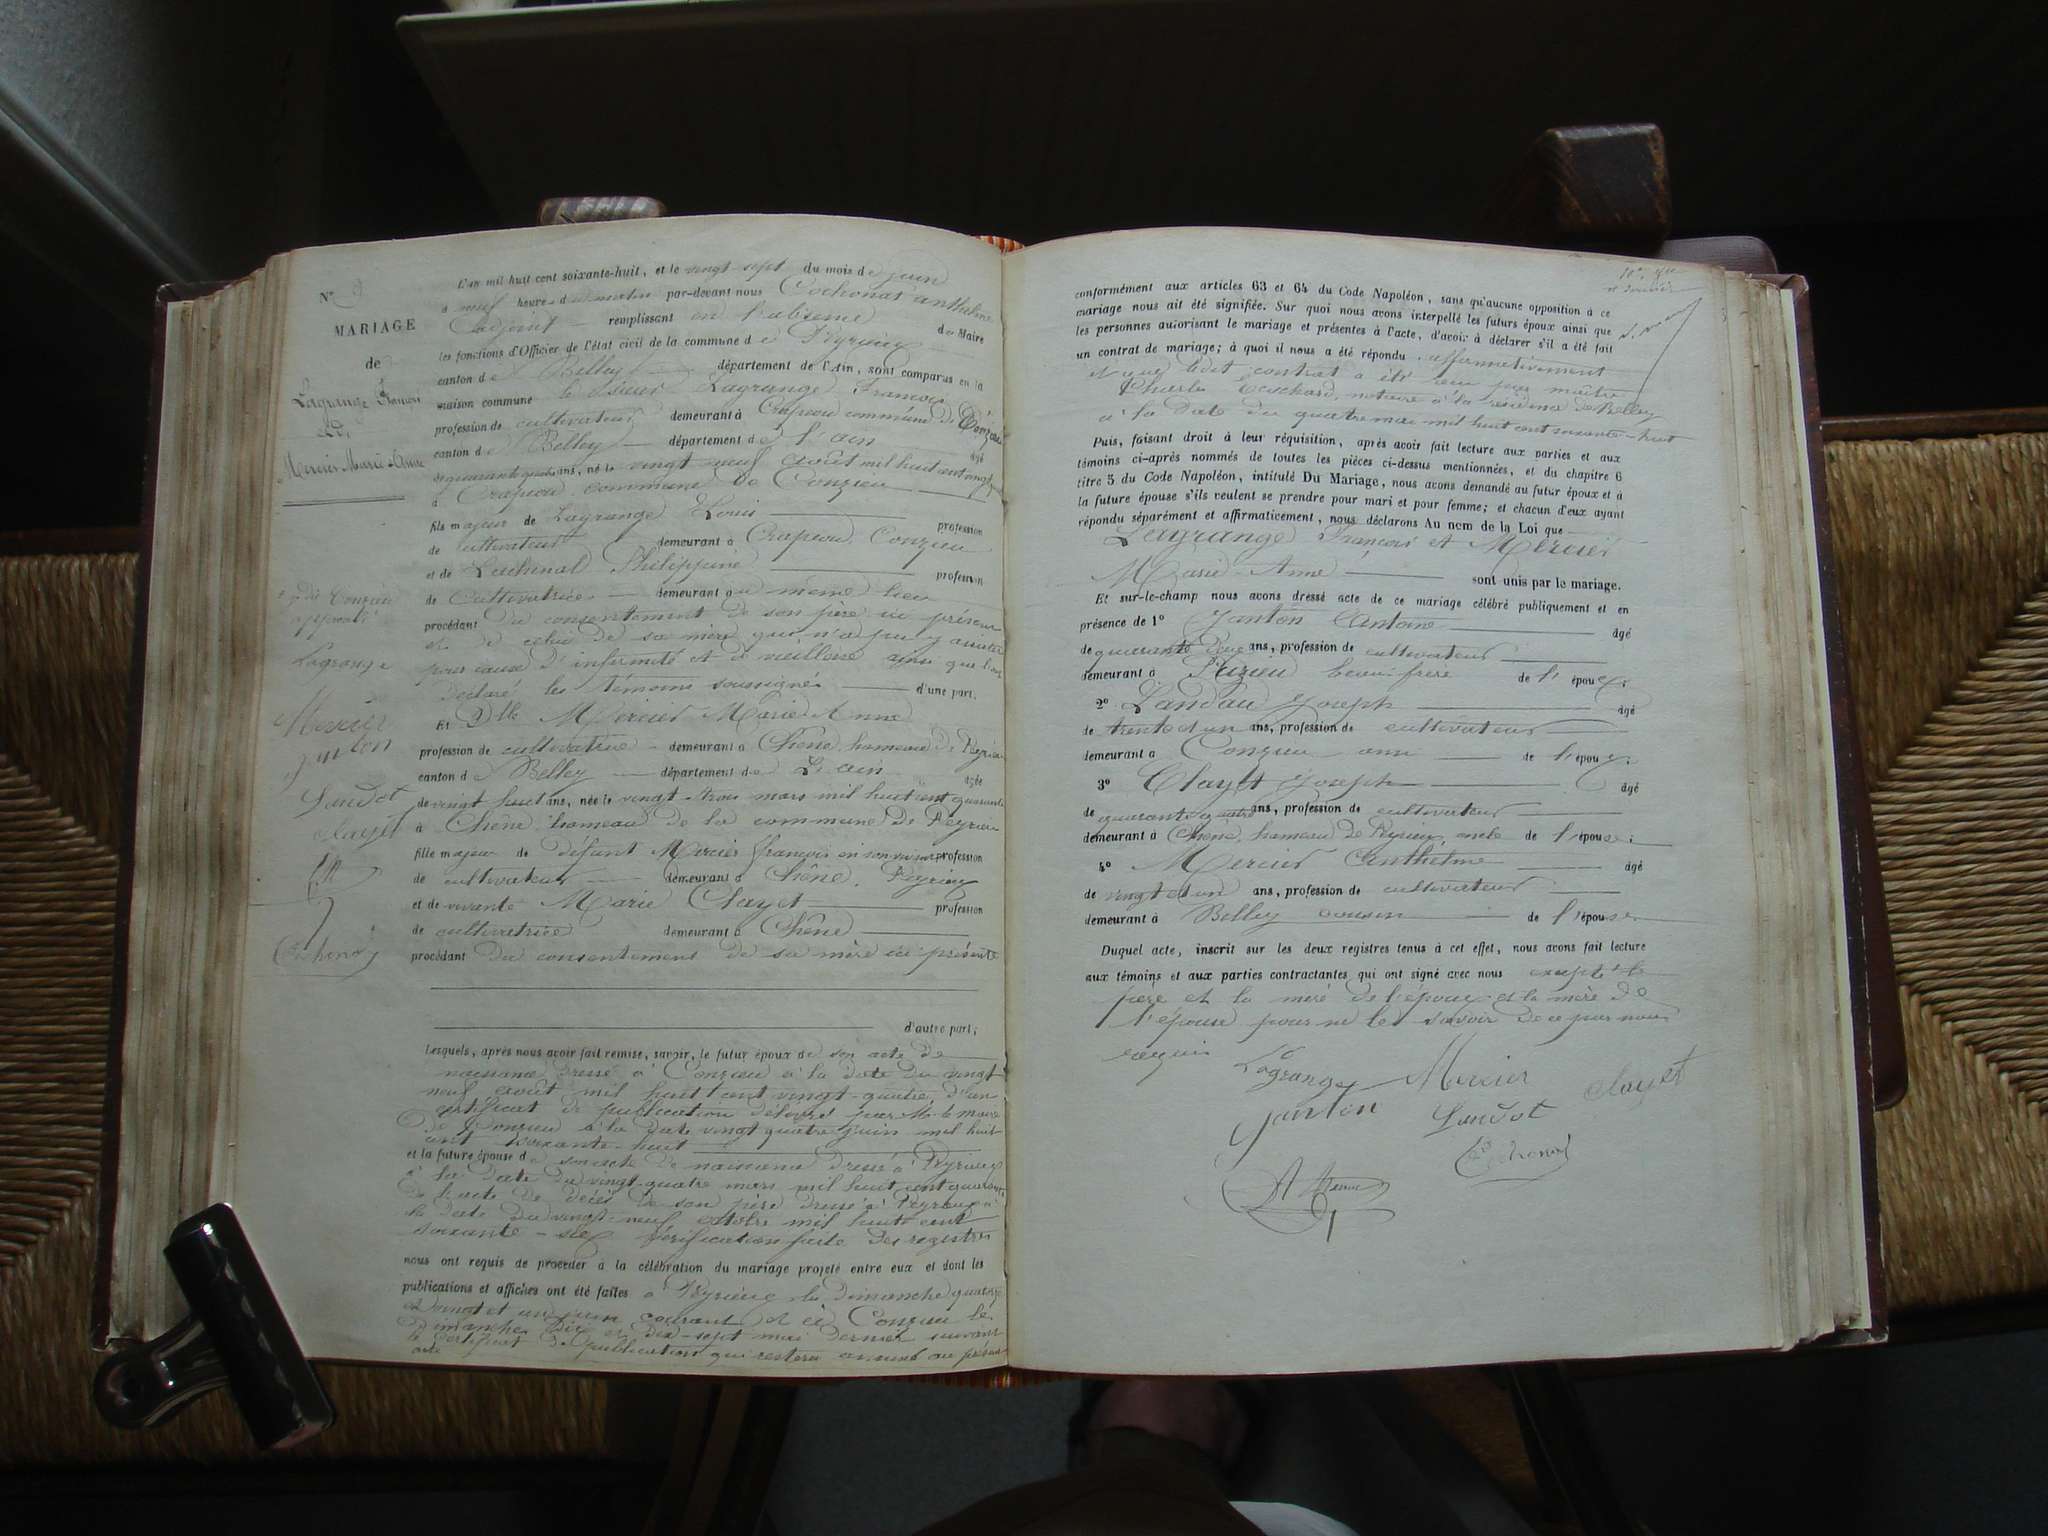 N° 9
MARIAGE
de
Lagrange François
et
Mercier Marie-Anne
L'an mil huit cent soixante-huit, et le vingt-sept du mois de juin
à neuf heures du matin par-devant nous Cochonat anthelme
adjoint remplissant en l'absence du Maire
les fonctions d'Officier de l'état civil de la commune de Peyrieu
canton de Belley département de l'Ain, sont comparus en la
maison commune le sieur Lagrange François
profession de cultivateur demeurant à Crapeou commune de Conzieu
canton de Belley département de l'ain âgé
de quarante quatre ans, né le vingt neuf août mil huit cent vingt
à Crapeou commune de Conzieu
fils majeur de Lagrange Louis profession
de cultivateur demeurant à Crapeou, Conzieu
et de Lachenal Philippine profession
de Cultivatrice demeurant au même lieu
procédant du consentement de son père ici présent
et de celui de sa mère qui n'a pu y assister
pour cause d'infirmité et de vieillesse ainsi que l'ont
déclaré les témoins soussignés d'une part.
Et Dlle Mercier Marie Anne
profession de cultivatrice demeurant à Chêne, hameau de Peyrieu
canton de Belley département de L'ain âgée
de vingt huit ans, née le vingt-trois mars mil huit cent quarante
à Chêne hameau de la commune de Peyrieu
fille majeure de défunt Mercier françois en son vivant profession
de cultivateur demeurant à Chêne, Peyrieu
et de vivante Marie Clayet profession
de cultivatrice demeurant à Chêne
procédant du consentement de sa mère ici présente
d'autre part;
Lesquels, après nous avoir fait remise, savoir, le futur époux de son acte de
naissance dressé à Conzieu à la date du vingt
neuf août mil huit cent vingt-quatre, d'un
certificat de publication délivré par Mr le maire
de Conzieu à la date vingt quatre juin mil huit
cent soixante-huit
et la future épouse de son acte de naissance dressé à Peyrieu
à la date du vingt-quatre mars mil huit cent quarante
de l'acte de décès de son père dressé à Peyrieu à
la date du vingt-neuf octobre mil huit cent
soixante-six vérification faite des registres
nous ont requis de procéder à la célébration du mariage projeté entre eux et dont les
publications et affiches ont été faites à Peyrieu les dimanche quatorze
et vingt et un juin courant et à Conzieu le
dimanche dix et dix-sept mai dernier suivant
le certificat de publication qui restera annexé au présent
acte
Conzieu
approuvé
Lagrange
Mercier
Janton
Landot
Clayet
Cochonat
conformément aux articles 63 et 64 du Code Napoléon, sans qu'aucune opposition à ce
mariage nous ait été signifiée. Sur quoi nous avons interpellé les futurs époux ainsi que
les personnes autorisant le mariage et présentes à l'acte, d'avoir à déclarer s'il a été fait
un contrat de mariage; à quoi il nous a été répondu affirmativement
et que ledit contrat a été reçu par maître
Charles notaire à la résidence de Belley
à la date du quatre mai mil huit cent soixante-huit
Puis, faisant droit à leur réquisition, après avoir fait lecture aux parties et aux
témoins ci-après nommés de toutes les pièces ci-dessus mentionnées, et du chapitre 6
titre 5 du Code Napoléon, intitulé Du Mariage, nous avons demandé au futur époux et à
la future épouse s'ils veulent se prendre pour mari et pour femme; et chacun d'eux ayant
répondu séparément et affirmativement, nous déclarons Au nom de la Loi que
Lagrange François et Mercier
Marie-Anne sont unis par le mariage.
Et sur-le-champ nous avons dressé acte de ce mariage célébré publiquement et en
présence de 1° Janton Antoine âgé
de quarante deux ans, profession de cultivateur
demeurant à beau-frère de l'époux;
2° Landau Joseph âgé
de trente et un ans, profession de cultivateur
demeurant à Conzieu ami de l'époux;
3° Clayet Joseph âgé
de quarante quatre ans, profession de cultivateur
demeurant à Chêne, hameau de Peyrieu, oncle de l'épouse;
4° Mercier Anthelme âgé
de vingt et un ans, profession de cultivateur
demeurant à Belley cousin de l'épouse.
Duquel acte, inscrit sur les deux registres tenus à cet effet, nous avons fait lecture
aux témoins et aux parties contractantes qui ont signé avec nous excepté le
père et la mère de l'époux et la mère de
l'épouse pour ne le savoir de ce par nous
requis
Lagrange Mercier Clayet
Janton Landot
Cochonat